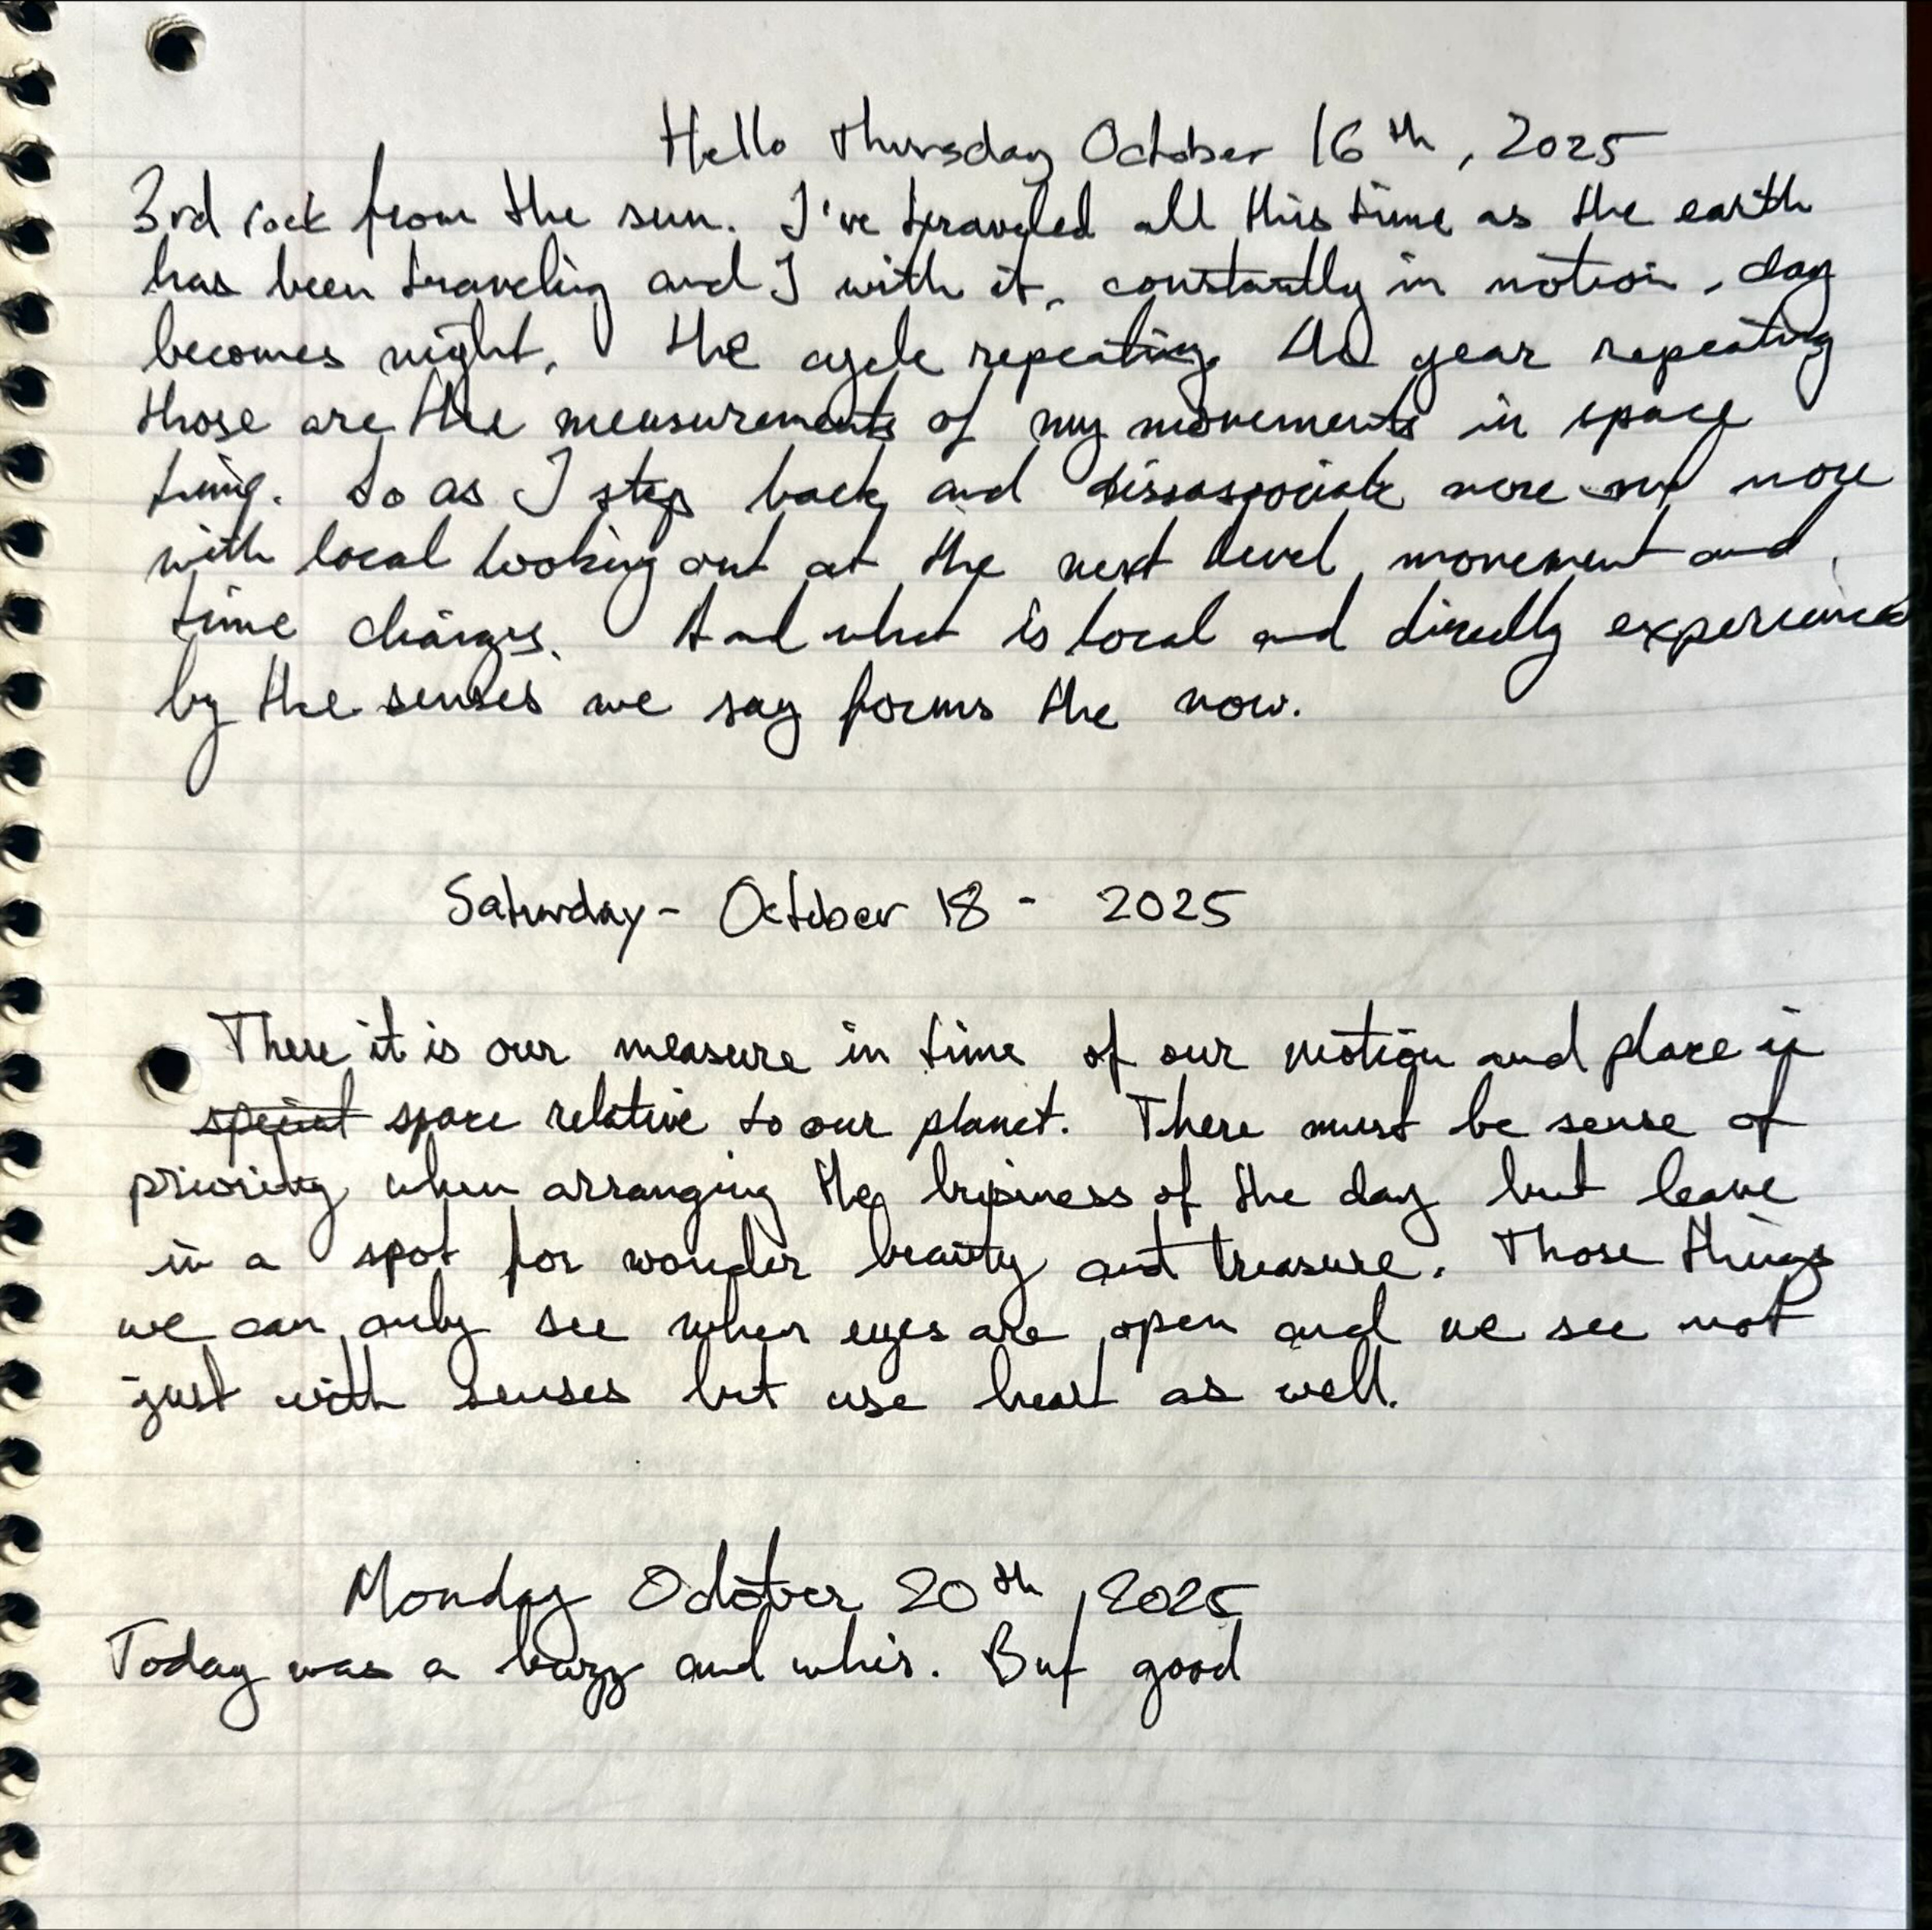 Hello Thursday October 16th, 2025
3rd rock from the sun. I've traveled all this time as the earth
has been traveling and I with it, constantly in motion, day
becomes night. The cycle repeating. The year repeating
those are the measurements of my movements in space
time. So as I step back and dissasociate more and more
with local looking out at the next level movement and
time changes. And what is local and directly experienced
by the senses we say forms the now.
Saturday - October 18 - 2025
There it is our measure in time of our motion and place in
special space relative to our planet. There must be sense of
priority when arranging the business of the day but leave
in a spot for wonder beauty and treasure. Those things
we can only see when eyes are open and we see not
just with senses but use heart as well.
Monday October 20th, 2025
Today was a buzz and whir. But good